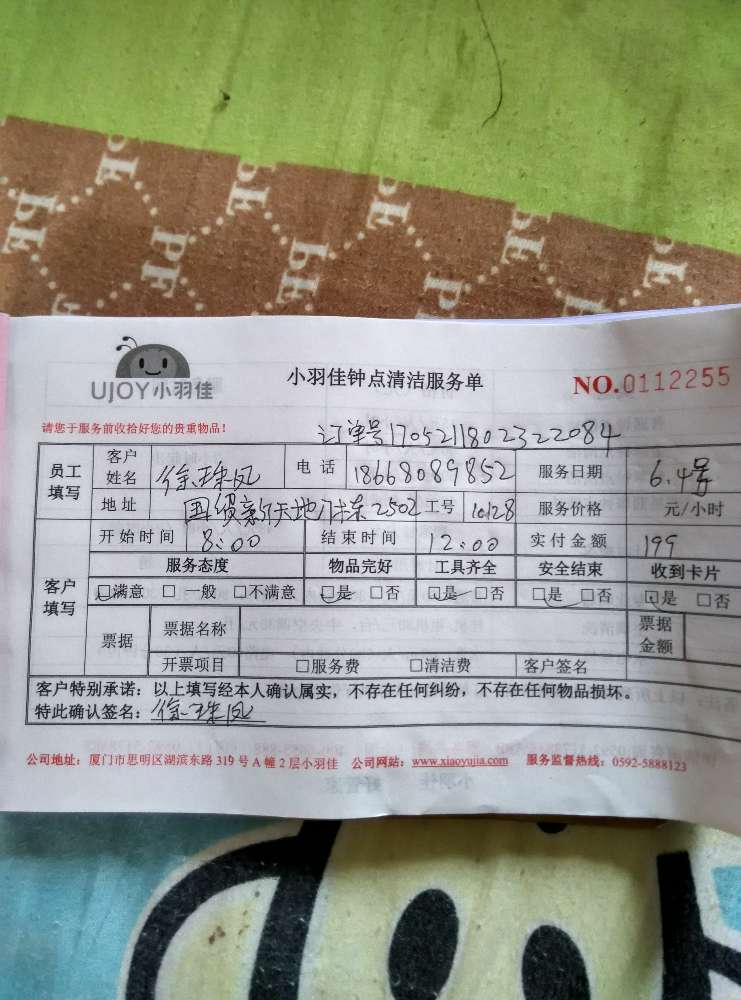 UJOY小羽佳
小羽佳钟点清洁服务单
NO.0112255
请您于服务前收拾好您的贵重物品!
订单号170521180232 2084
员工填写 客户姓名 徐珠凤 电话 18668089852 服务日期 6.4号
地址 国贸新天地 东2502 工号 10128 服务价格 元/小时
客户填写 开始时间 8:00 结束时间 12:00 实付金额 199
服务态度 物品完好 工具齐全 安全结束 收到卡片
☑满意 □一般 □不满意 ☑是 □否 ☑是 □否 ☑是 □否 ☑是 □否
票据 票据名称 票据金额
开票项目 □服务费 □清洁费 客户签名
客户特别承诺:以上填写经本人确认属实,不存在任何纠纷,不存在任何物品损坏。
特此确认签名:徐珠凤
公司地址:厦门市思明区湖滨东路319号A幢2层小羽佳 公司网站:www.xiaoyujia.com 服务监督热线:0592-5888123